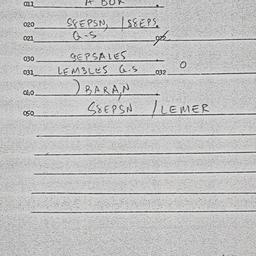 011 A BOR
020 S8EPSN, / S8EPS
021 G-S 022
030 9EPSALES
031 LEMBLES G.S 032 O
040 ) BARAN
050 S8EPSN / LEMER